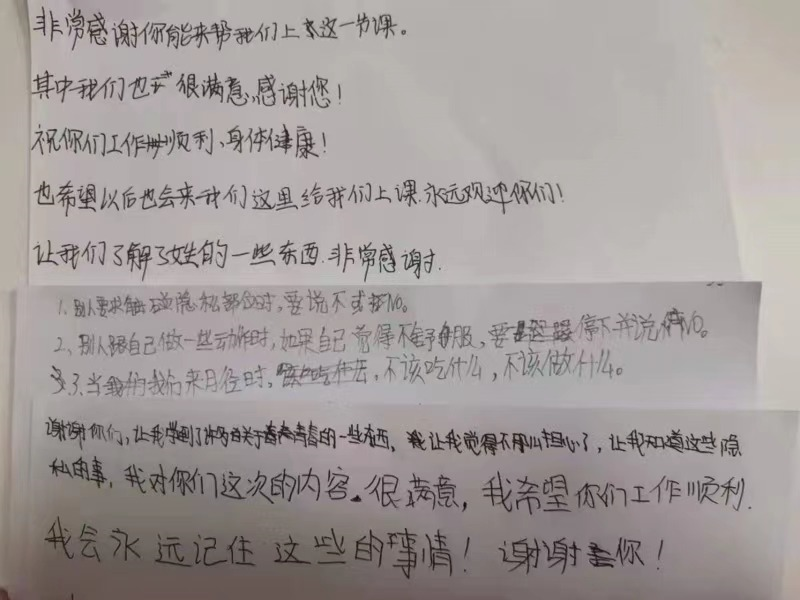 非常感谢你能来帮我们上这一节课。
其中我们也很满意、感谢您！
祝你们工作顺利、身体健康！
也希望以后也会来我们这里给我们上课.永远欢迎你们！
让我们了解了姓的一些东西.非常感谢.
1、别人要求触碰隐私部位时，要说不或NO。
2、别人跟自己做一些动作时，如果自己觉得不舒服，要停下并说NO。
3.当我们来月经时，不该吃什么，不该做什么。
谢谢你们，让我学到了许多关于青春的一些东西，让我觉得不用么担心了，让我知道这些隐
私的事，我对你们这次的内容很满意，我希望你们工作顺利.
我会永远记住这些的事情！谢谢你！